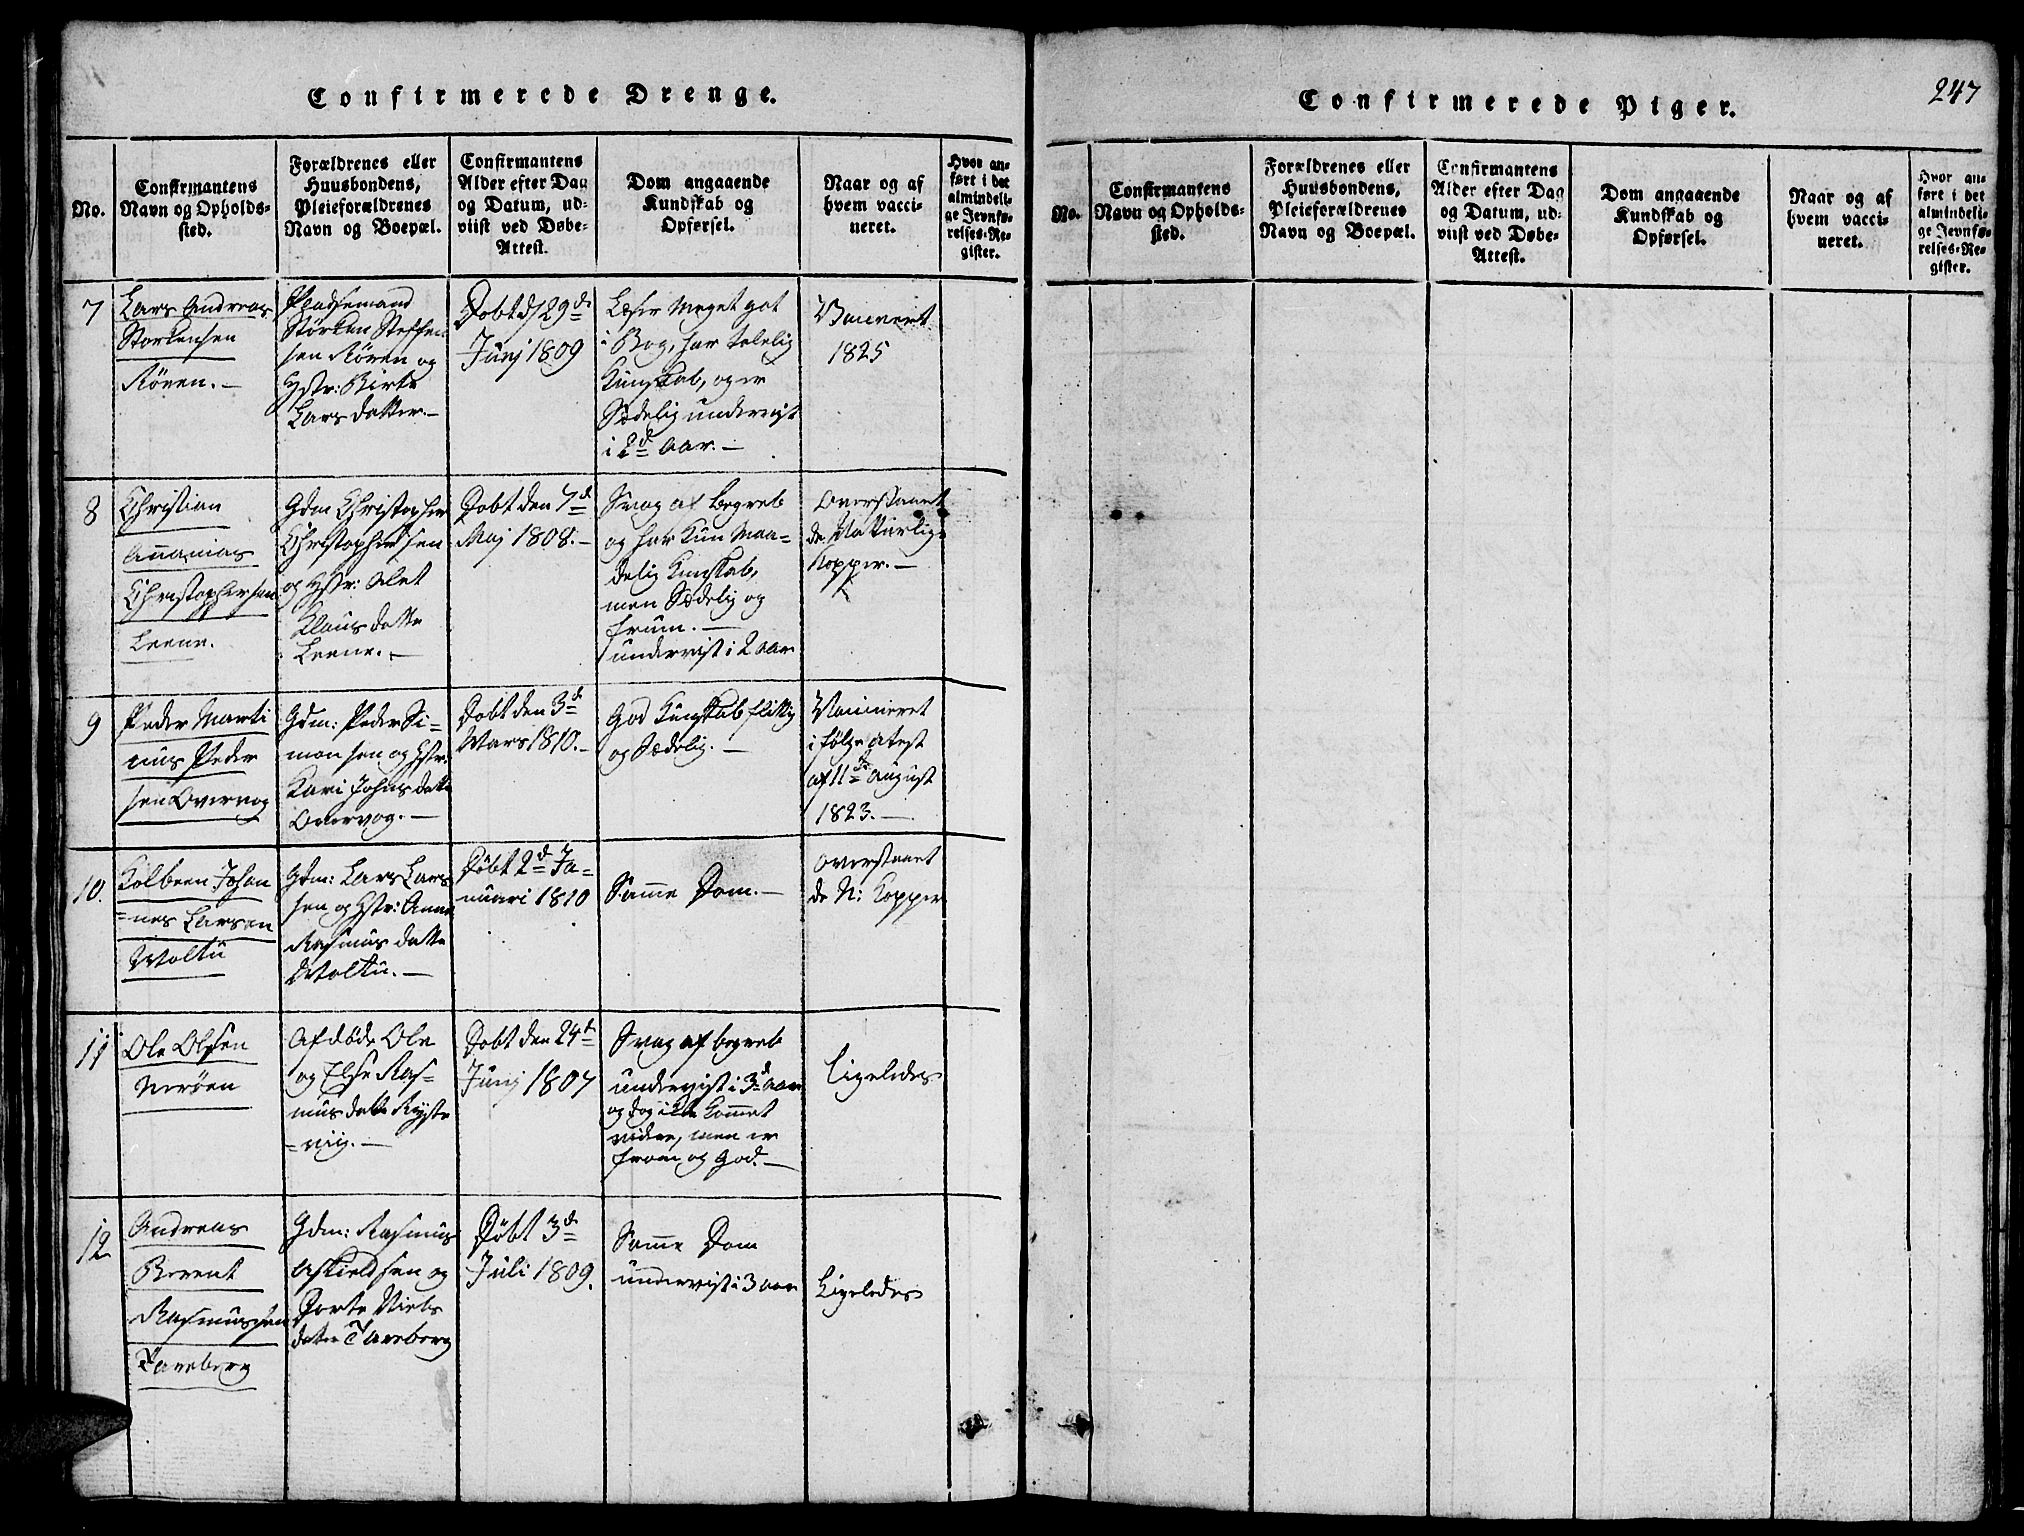 Confirmerede Drenge.
No.
Confirmantens
Navn og Opholds-
sted.
Forældrenes eller
Huusbondens,
Pleieforældrenes
Navn og Boepæl.
Confirmantens
Alder efter Dag
og Datum, ud-
viist ved Døbe-
Attest.
Dom angaaende
Kundskab og
Opførsel.
Naar og af
hvem vacci-
neret.
Hvor an-
ført i det
almindeli-
ge Jevnfø-
relses-Re-
gister.
7
Lars Andreas
Storkensen
Røren.-
Pladsemand
Størken Steffen
sen Røren og
Hstr: Birte
Larsdatter.-
Døbt d/29d
Junj 1809
Læser Meget got
i Bog, har telelig
Kunskab, og er
Sædelig undervist
i 2d Aar.-
Vacineret
1825
8
Christian
Ananias
Christophersen
Leene.
Gdm Christopher
Christophersen
og Hstr: Alet
Klausdatte
Leene.-
Døbt den 7d
Maj 1808.-
Svag af Begreb
og har Kun Maa-
delig Kunskab,
men Sædelig og
from.-
undervist i 2 Aar
Overstaaet
de Naturlige
Kopper.-
9
Peder Marti
nus Peder
sen Overvog
Gdm: Peder Si-
monsen og Hstr.
Kari Johnsdatte
Overvog.-
Døbt den 3d
Mars 1810.-
God Kunskab flittig
og Sædelig.-
Vacineret
i følge Atest
af 11te August
1823.-
10.
Kolbeen Johan
=nes Larsen
Woltu
Gdm: Lars Lars
sen og Hstr: Anne
Rasmusdatte
Woltu.-
Døbt 2d Ja-
nuari 1810
Samme Dom.-
Overstaaet
de N: Kopper
11
Ole Olsen
Nerøen
Afdøde Ole
og Else Ras-
musdatte Røyste
=viig.-
Døbt den 24d
Junj 1807
Svag af begreb
undervist i 3d Aar
og dog ikke kommet
videre, men er
from og God.-
Ligeledes
12
Andreas
Berent
Rasmussen
Tareberg
Gdm: Rasmus
Askieldsen og
Dorte Niels
datter Tareberg
Døbt 3d
Juli 1809.
Samme Dom
undervist i 3 Aar
Ligeledes
Confirmerede Piger.
247
No.
Confirmantens
Navn og Opholds-
sted.
Forældrenes eller
Huusbondens,
Pleieforældrenes
Navn og Boepæl.
Confirmantens
Alder efter Dag
og Datum, ud-
viist ved Døbe-
Attest.
Dom angaaende
Kundskab og
Opførsel.
Naar og af
hvem vacci-
neret.
Hvor an-
ført i det
almindeli-
ge Jevnfø-
relses-Re-
gister.